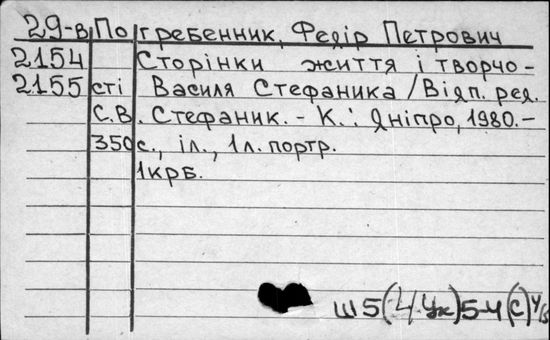 29-в Погребенник, Федір Петрович
2154 Сторінки життя і творчо-
2155 сті Василя Стефаника / Відп. ред.
С.В. Стефаник. - К.: Дніпро, 1980. -
350с., іл., 1л. портр.
1крб.
Ш5(4Ук)5-4(С)